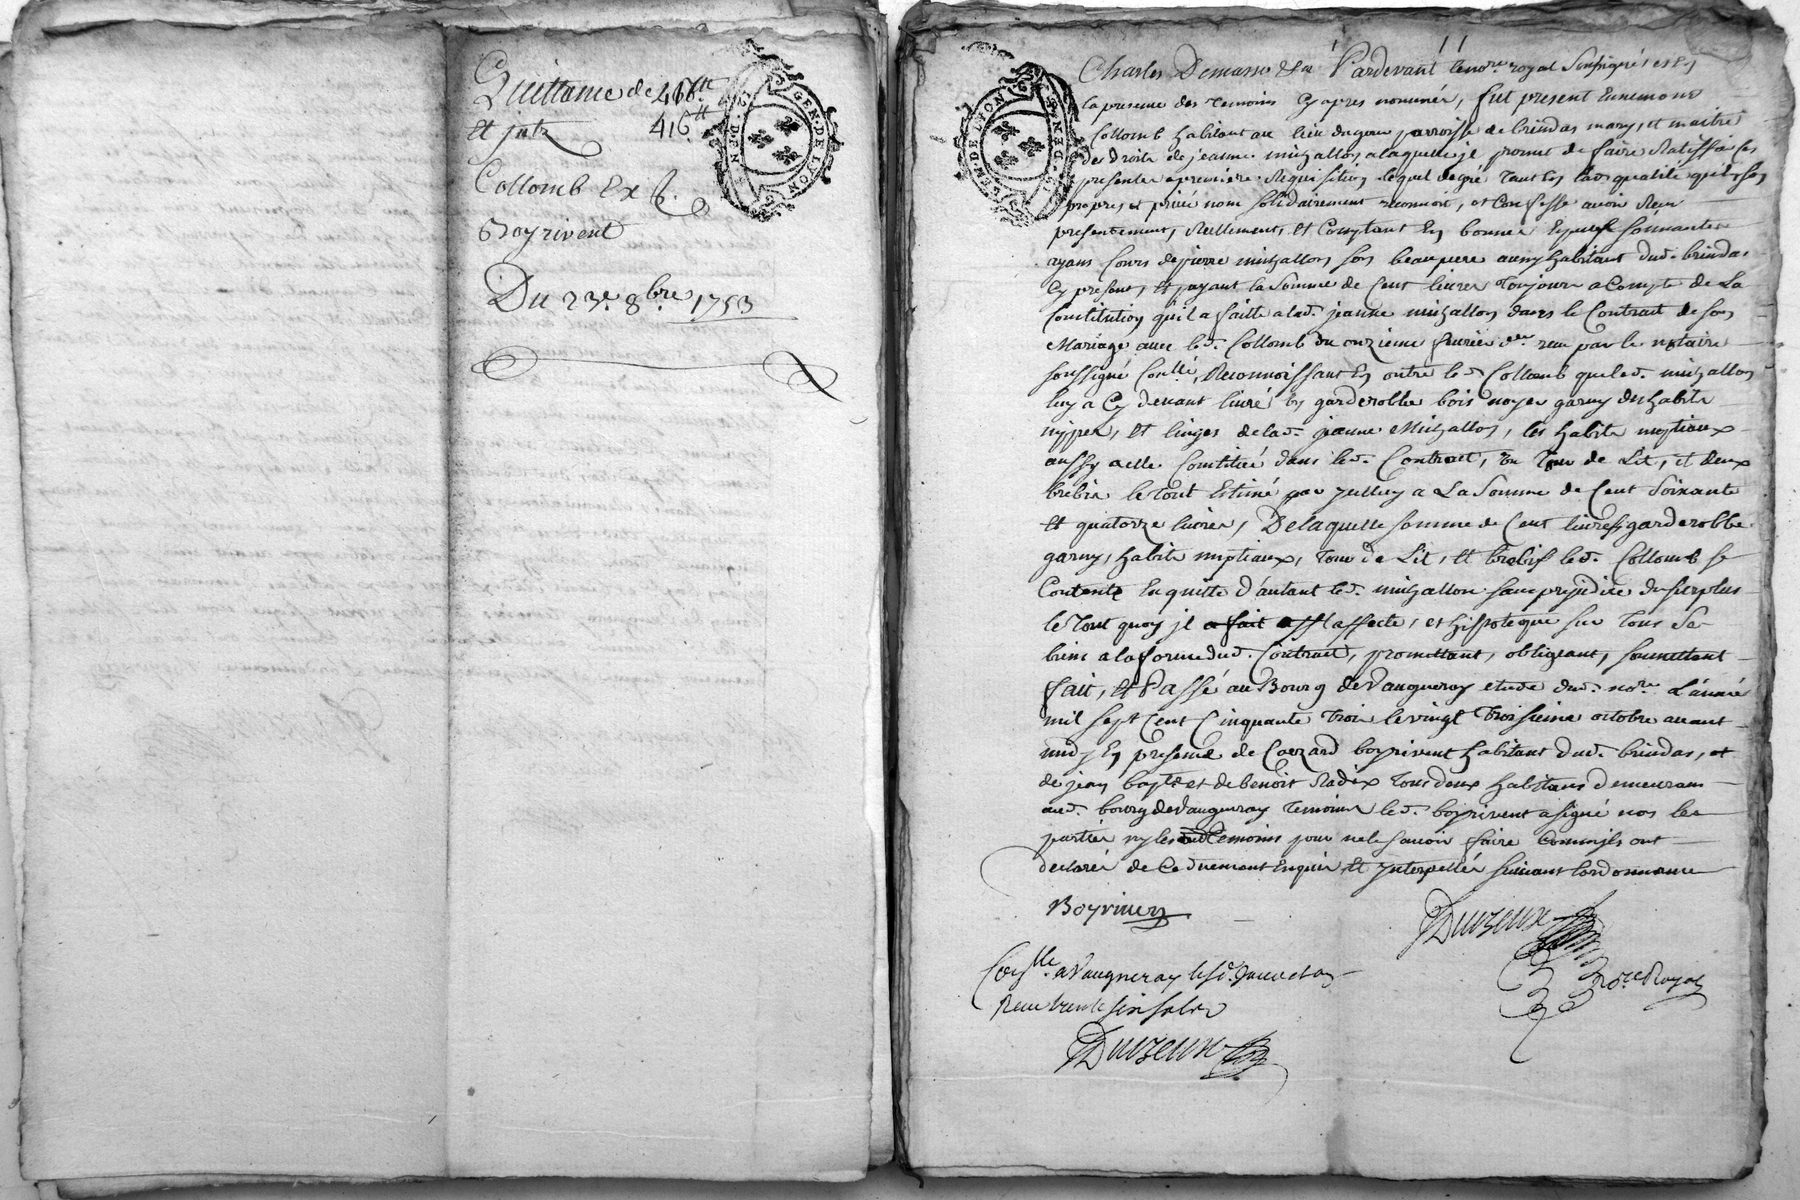 Quittance de 416tt
et jntz 416tt
Collomb Ex
Boyrivent
Du 23e. 8bre. 1753
GEN. DE LYON
GEN. DE LYON
Pardevant le nore. royal soussigné et en
la presence des temoins cy apres nommés, fut present Ennemond
Collomb habitant au lieu parroisse de brindas mary, et maitre
des droits de jeanne a laquelle il promet de faire Ratiffier ces
presentes a premiere Requisition lequel de gré tant en lad. qualité qu'en son
propre, et privé nom solidairement reconnoit, et confesse avoir Reçu
presentement, Réellement, et Comptant En bonnes Especes sonnantes
ayant Cours de pierre mihallon son beaupere aussy habitant dud. brindas
Cy present, et payant la somme de Cent livres toujours a Compte de La
Constitution qu'il a faitte a lad. jeanne mihallon dans le Contrat de son
Mariage avec led. Collomb du onzieme fevrier der. reçu par le notaire
soussigné Conllé, Reconnoissant En outre led. Collomb que led. mihallon
luy a Cy devant livré un garderobbe bois noyer garny des habits
nippes, et linges de lad. jeanne Mihallon, les habits nuptiaux
aussy a elle Constitués dans led. Contrat, un tour de Lit, et deux
brebis le tout Estimé par a La somme de Cent soixante
et quatorze livres, De laquelle somme de Cent livres garderobbe
garny, habits nuptiaux, tour de Lit, et brebis led. Collomb se
Contente En quitte d'autant led. mihallon sans prejudice du surplus
le tout quoy il a fait aff affecte, et hippoteque sur tous ses
biens a la forme dud. Contrat, promettant, obligeant, soumettant
fait, et Passé au Bourg de Vaugneray etude dud. nore. L'année
mil sept Cent Cinquante trois le vingt troisieme octobre avant
midy En presence de boyrivent habitant dud. brindas, et
de jean bapte. et de benoit Radix tous deux habitans demeurans
aud. bourg de Vaugneray temoins led. boyrivent a signé non les
parties ny les temoins pour ne le savoir faire Comm'ils ont
declaré de Ce duement Enquis, et Interpellés suivant lordonnance
Boyriven
Duizeux
Nore. Royal
Conllé. a Vaugneray le
Reçu trente six sols
Duizeux